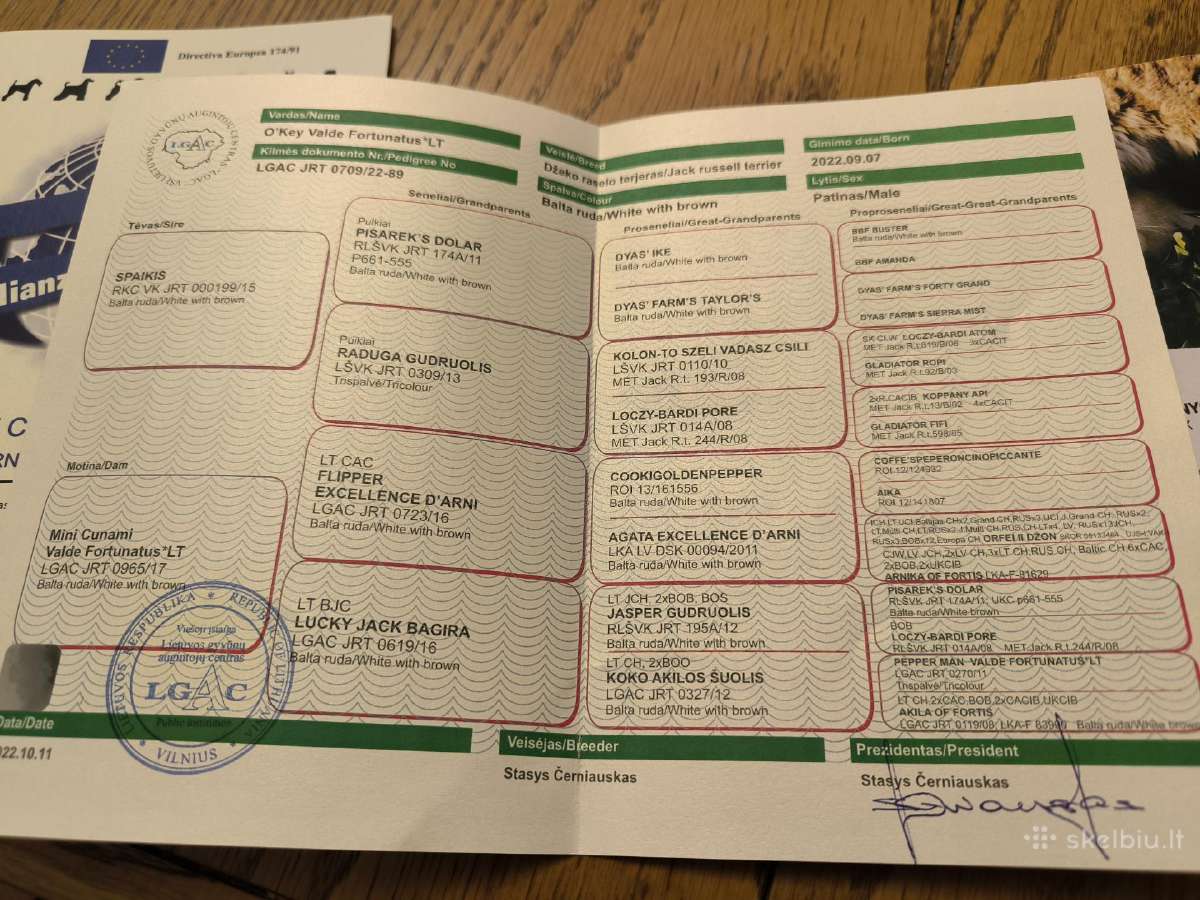 Directiva Europea 174/91
LIETUVOS GYVŪNŲ AUGINTOJŲ CENTRAS
LGAC
Vardas/Name
O'Key Valde Fortunatus*LT
Kilmės dokumento Nr./Pedigree No
LGAC JRT 0709/22-89
Veislė/Breed
Džeko raselo terjeras/Jack russell terrier
Spalva/Colour
Balta ruda/White with brown
Gimimo data/Born
2022.09.07
Lytis/Sex
Patinas/Male
Tėvas/Sire
SPAIKIS
RKC VK JRT 000199/15
Balta ruda/White with brown
Motina/Dam
Mini Cunami
Valde Fortunatus*LT
LGAC JRT 0965/17
Balta ruda/White with brown
Seneliai/Grandparents
Puikiai
PISAREK'S DOLAR
RLŠVK JRT 174A/11
P661-555
Balta ruda/White with brown
Puikiai
RADUGA GUDRUOLIS
LŠVK JRT 0309/13
Trispalvė/Tricolour
LT CAC
FLIPPER
EXCELLENCE D'ARNI
LGAC JRT 0723/16
Balta ruda/White with brown
LT BJC
LUCKY JACK BAGIRA
LGAC JRT 0619/16
Balta ruda/White with brown
Proseneliai/Great-Grandparents
DYAS' IKE
Balta ruda/White with brown
DYAS' FARM'S TAYLOR'S
Balta ruda/White with brown
KOLON-TO SZELI VADASZ CSILI
LŠVK JRT 0110/10
MET Jack R.t. 193/R/08
LOCZY-BARDI PORE
LŠVK JRT 014A/08
MET Jack R.t. 244/R/08
COOKIGOLDENPEPPER
ROI 13/161556
Balta ruda/White with brown
AGATA EXCELLENCE D'ARNI
LKA LV DSK 00094/2011
Balta ruda/White with brown
LT JCH, 2xBOB, BOS
JASPER GUDRUOLIS
RLŠVK JRT 195A/12
Balta ruda/White with brown
LT CH, 2xBOO
KOKO AKILOS ŠUOLIS
LGAC JRT 0327/12
Balta ruda/White with brown
Proproseneliai/Great-Great-Grandparents
BBF BUSTER
Balta ruda/White with brown
BBF AMANDA
DYAS' FARM'S FORTY GRAND
DYAS' FARM'S SIERRA MIST
SK CLW LOCZY-BARDI ATOM
MET Jack R.t.019/B/08 3xCACIT
GLADIATOR ROPI
MET Jack R.t.92/B/03
2xR.CACIB KOPPANY API
MET Jack R.t.13/B/02 4xCACIT
GLADIATOR FIFI
MET Jack R.t.598/05
COFFE'SPEPERONCINOPICCANTE
ROI 12/124932
AIKA
ROI 12/141807
ORFEI II DŽON
CJW,LV,JCH,2xLV CH,3xLT CH,RUS CH, Baltic CH 6xCAC,
2xBOB,2xUKCIB
ARNIKA OF FORTIS LKA-F-81629
PISAREK'S DOLAR
RLŠVK JRT 174A/11; UKC p661-555
Balta ruda/White with brown
BOB
LOCZY-BARDI PORE
RLŠVK JRT 014A/08 MET Jack R.t.244/R/08
PEPPER MAN VALDE FORTUNATUS*LT
LGAC JRT 0270/11
Trispalvė/Tricolour
LT CH,2xCAC,BOB,2xCACIB,UKCIB
AKILA OF FORTIS
LGAC JRT 0119/08 Balta ruda/White with brown
LIETUVOS RESPUBLIKA * REPUBLIC OF LITHUANIA
Viešoji įstaiga
Lietuvos gyvūnų
augintojų centras
LGAC
Public institution
VILNIUS
Data/Date
022.10.11
Veisėjas/Breeder
Stasys Černiauskas
Prezidentas/President
Stasys Černiauskas
skelbiu.lt